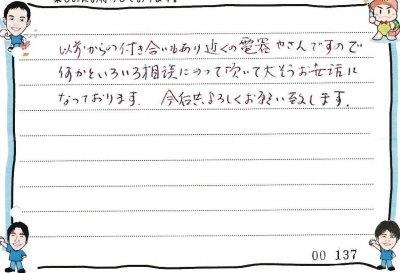 以前からの付き合いもあり近くの電器やさんですので
何かといろいろ相談にのって頂いて大そうお世話に
なっております。 今后共よろしくお願い致します。
00 137